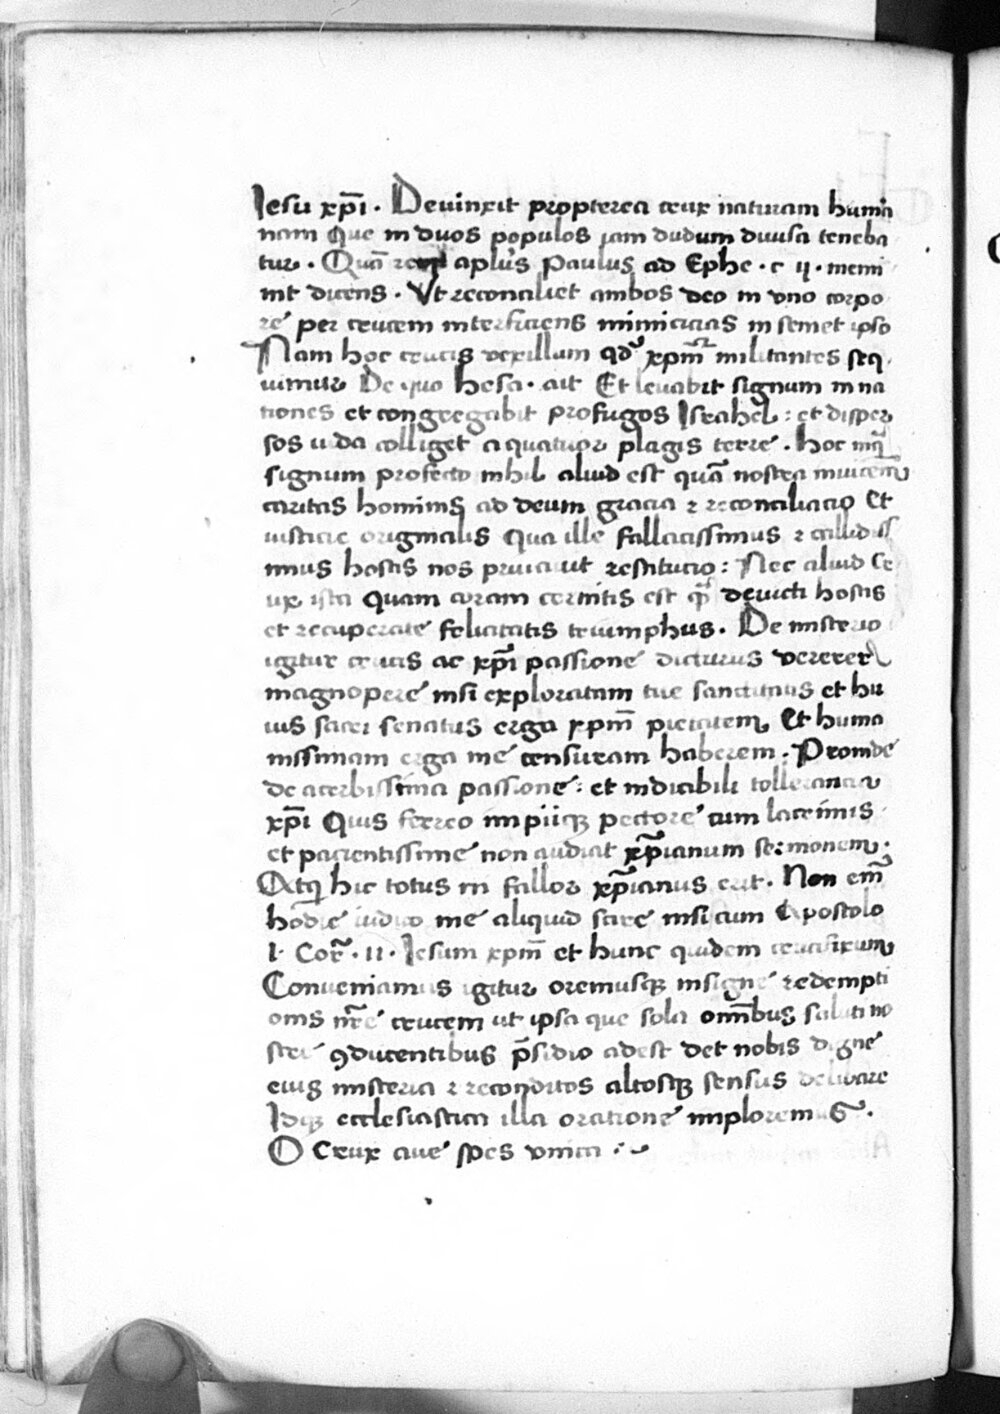 Iesu xp̄i . Devinxit propterea crux naturam huma
nam Que in duos populos iam dudum divisa teneba
tur . Quā aplūs Paulus ad Ephe . c ij . memi
nit dicens . Vt reconciliet ambos deo in vno corpo
re per crucem interficiens inimicicias in semet ipso
Nam hoc crucis vexillum qd' xp̄m militantes seq
uimur De quo hesa . ait Et levabit signum in na
tiones et congregabit profugos Israhel : et disper
sos iuda colliget a quatuor plagis terre . hoc inq̄
signum profecto nihil aliud est quā nostra invicem
caritas hominis ad deum gracia & reconciliacio Et
iusticie originalis Qua ille fallacissimus & callidiss
imus hostis nos privavit restitutio : Nec aliud Cr
ux ista Quam coram cernitis est devicti hostis
et recuperate felicitatis triumphus . De misterio
igitur crucis ac xp̄i passione dicturus vererer
magnopere nisi exploratam tue sanctitatis et hu
ius sacri senatus erga xpm̄ pietatem Et huma
nissimam erga me censuram haberem . Proinde
de acerbissima passione : et indicibili tollerancia
xp̄i Quis ferreo impiiq3 pectore cum lacrimis
et pacientissime non audiat xp̄ianum sermonem .
Atq3 hic totus ni fallor xp̄ianus erit . Non em̄
hodie iudico me aliquid scire nisi cum Apostolo
I . Cor̄ . II . Iesum xpm̄ et hunc quidem crucifixum
Conveniamus igitur oremusq3 insigne redempti
onis nr̄e crucem ut ipsa que sola om̄ibus saluti no
stre 9ducentibus p̄sidio adest det nobis digne
eius misteria & reconditos altosq3 sensus delibare
Idq3 ecclesiastica illa oratione imploremus .
O Crux ave spes vnica :~